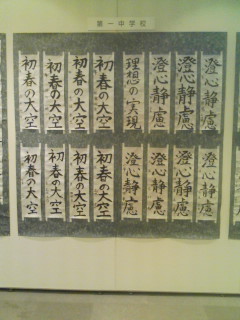 第一中学校
澄心静慮
澄心静慮
澄心静慮
理想の実現
初春の大空
初春の大空
初春の大空
初春の大空
澄心静慮
澄心静慮
澄心静慮
澄心静慮
初春の大空
初春の大空
初春の大空
初春の大空